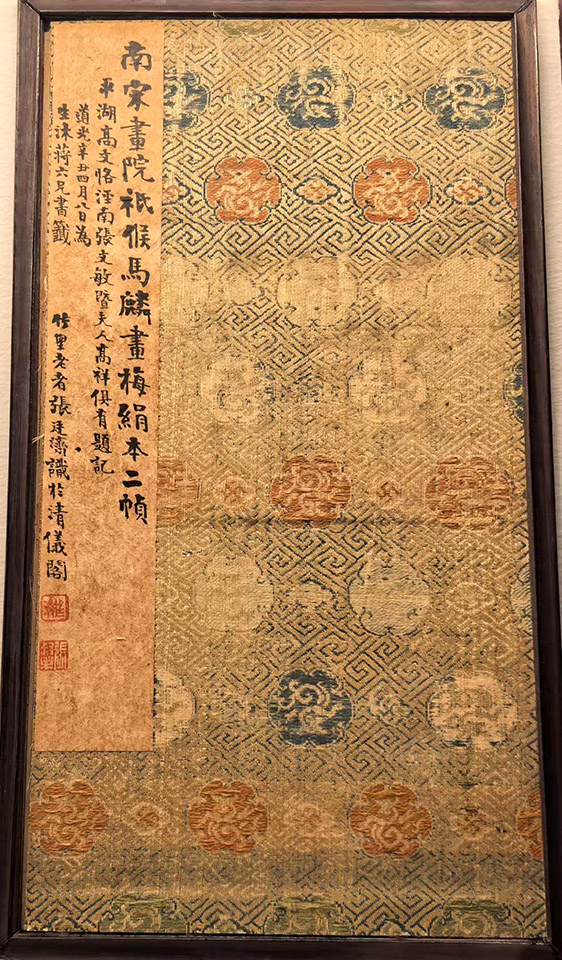 南宋畫院祇候馬麟畫梅絹本二幀
平湖高文恪涇南張文敏暨夫人高祥俱有題記
道光辛丑四月八日為
生沐蔣六兄書籤
竹里老者張廷濟識於清儀閣